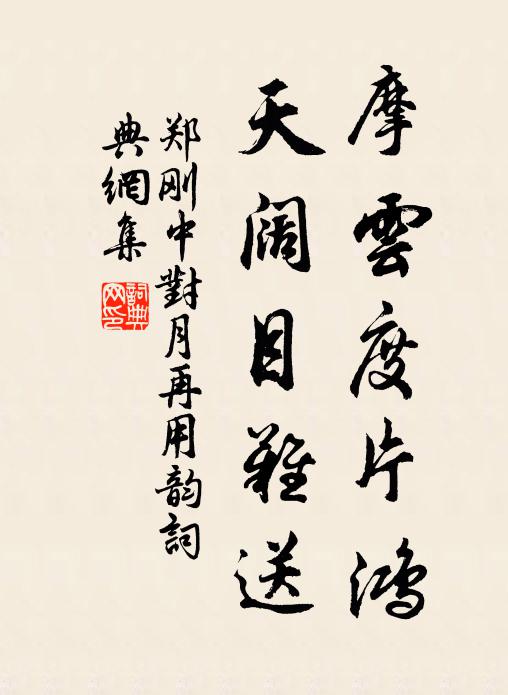 摩雲度片鸿
天阔目難送
郑刚中對月再用韵詞
典網集
詞典网印